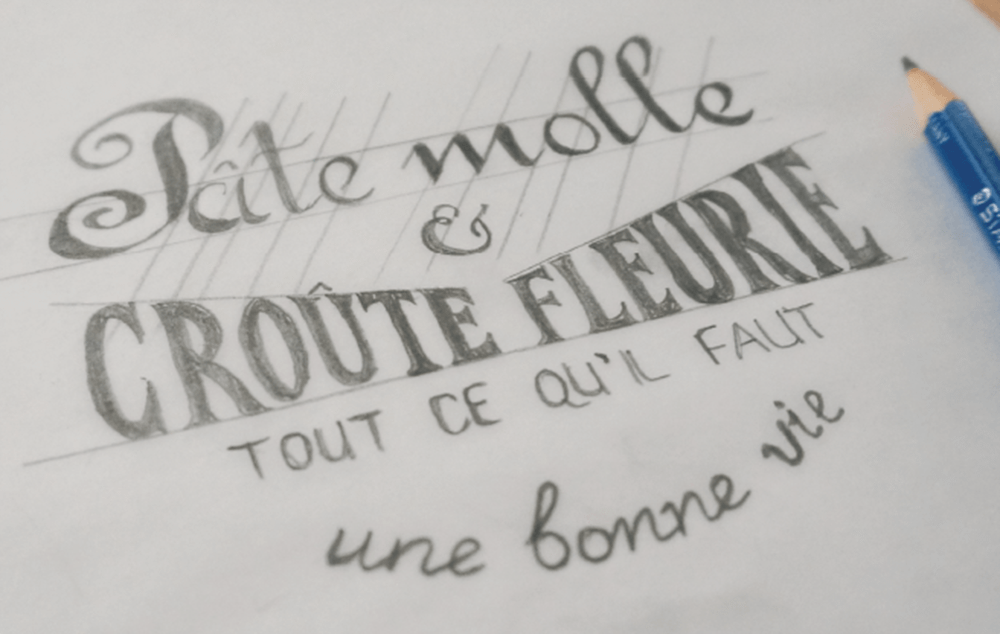 Pâte molle
&
CROÛTE FLEURIE
TOUT CE QU'IL FAUT
une bonne vie